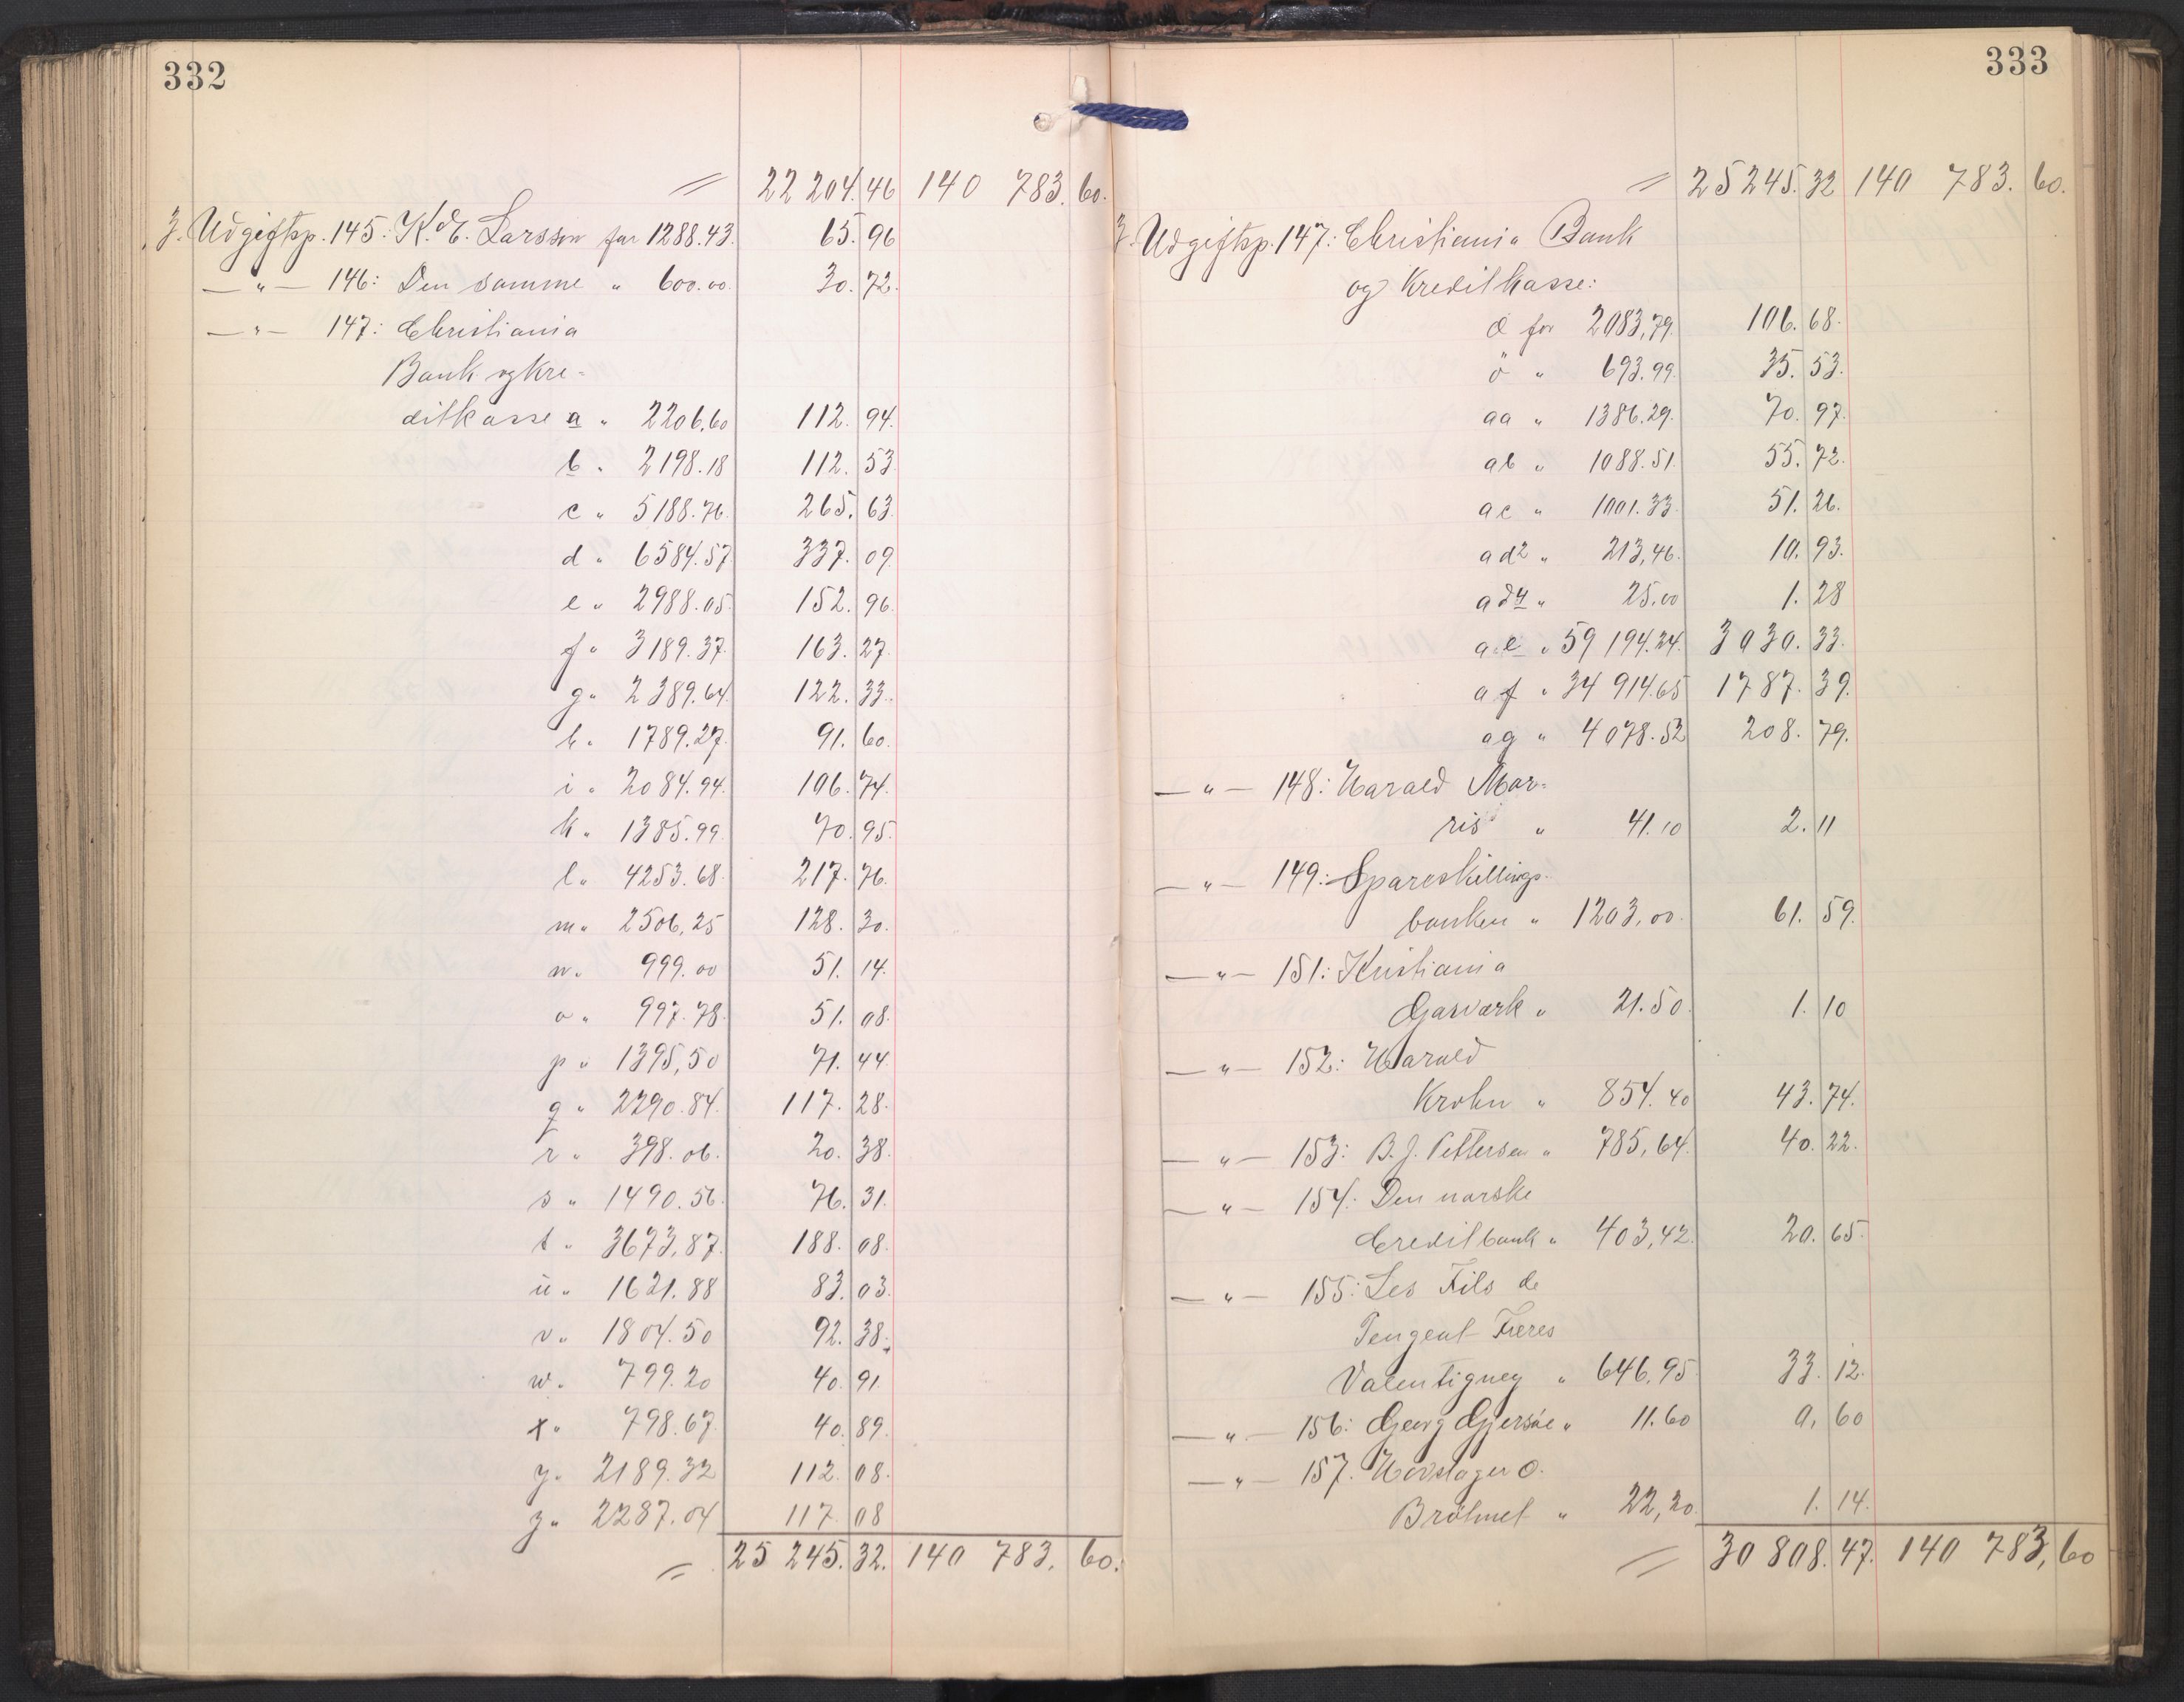 332
= 22 204. 46 140 783. 60.
3. Udgiftsp. 145: K. E. Larssen for 1288.43. 65. 96
—"— 146: Den samme " 600.00. 30. 72.
—"— 147: Christiania
Bank og Kre-
ditkasse a " 2206.60 112. 94.
b " 2198.18 112. 53
c " 5188.76. 265. 63.
d " 6584.57 337. 09.
e " 2988.05. 152. 96.
f " 3189.37. 163. 27.
g " 2389.64. 122. 33.
h " 1789.27. 91. 60.
i " 2084.94. 106. 74.
k " 1385.99. 70. 95.
l " 4253.68. 217. 76.
m " 2506,25 128. 30.
n " 999.00 51. 14.
o " 997.78. 51. 08.
p " 1395,50 71. 44.
q " 2290.84. 117. 28.
r " 398.06. 20. 38.
s " 1490.56. 76. 31.
t " 3673,87. 188. 08.
u " 1621.88 83. 03.
v " 1804.50 92. 38.
w " 799.20 40. 91.
x " 798.67. 40. 89.
y " 2189.32 112. 08.
z " 2287.04 117. 08
= 25 245. 32. 140 783. 60.
333
= 25245. 32 140 783. 60.
3. Udgiftsp. 147: Christiania Bank
og Kreditkasse:
for 2083,79. 106. 68.
ö " 693.99. 35. 53.
aa " 1386.29. 70. 97.
ab " 1088.51. 55. 72.
ac " 1001.33. 51. 26.
ad2 " 213,46. 10. 93.
ad4 " 25.00 1. 28
ae " 59 194.24. 3030. 33.
af " 34 914.65 1787. 39.
ag " 4078.52 208. 79.
—"— 148: Harald Mor-
ris " 41.10 2. 11
—"— 149: Spareskillings-
banken " 1203,00. 61. 59.
—"— 151: Kristiania
Gasværk " 21.50. 1. 10
—"— 152: Harald
Krohn " 854.40 43. 74.
—"— 153: B. J. Pettersen " 785,64. 40. 22.
—"— 154: Den norske
Creditbank " 403,42. 20. 65.
—"— 155: Les Fils de
Peugeot Freres
Valentigney " 646,95. 33. 12.
—"— 156: Georg Gjersøe " 11.60 0. 60
—"— 157. Hovslager O.
" 22,20. 1. 14.
= 30 808. 47. 140 783, 60